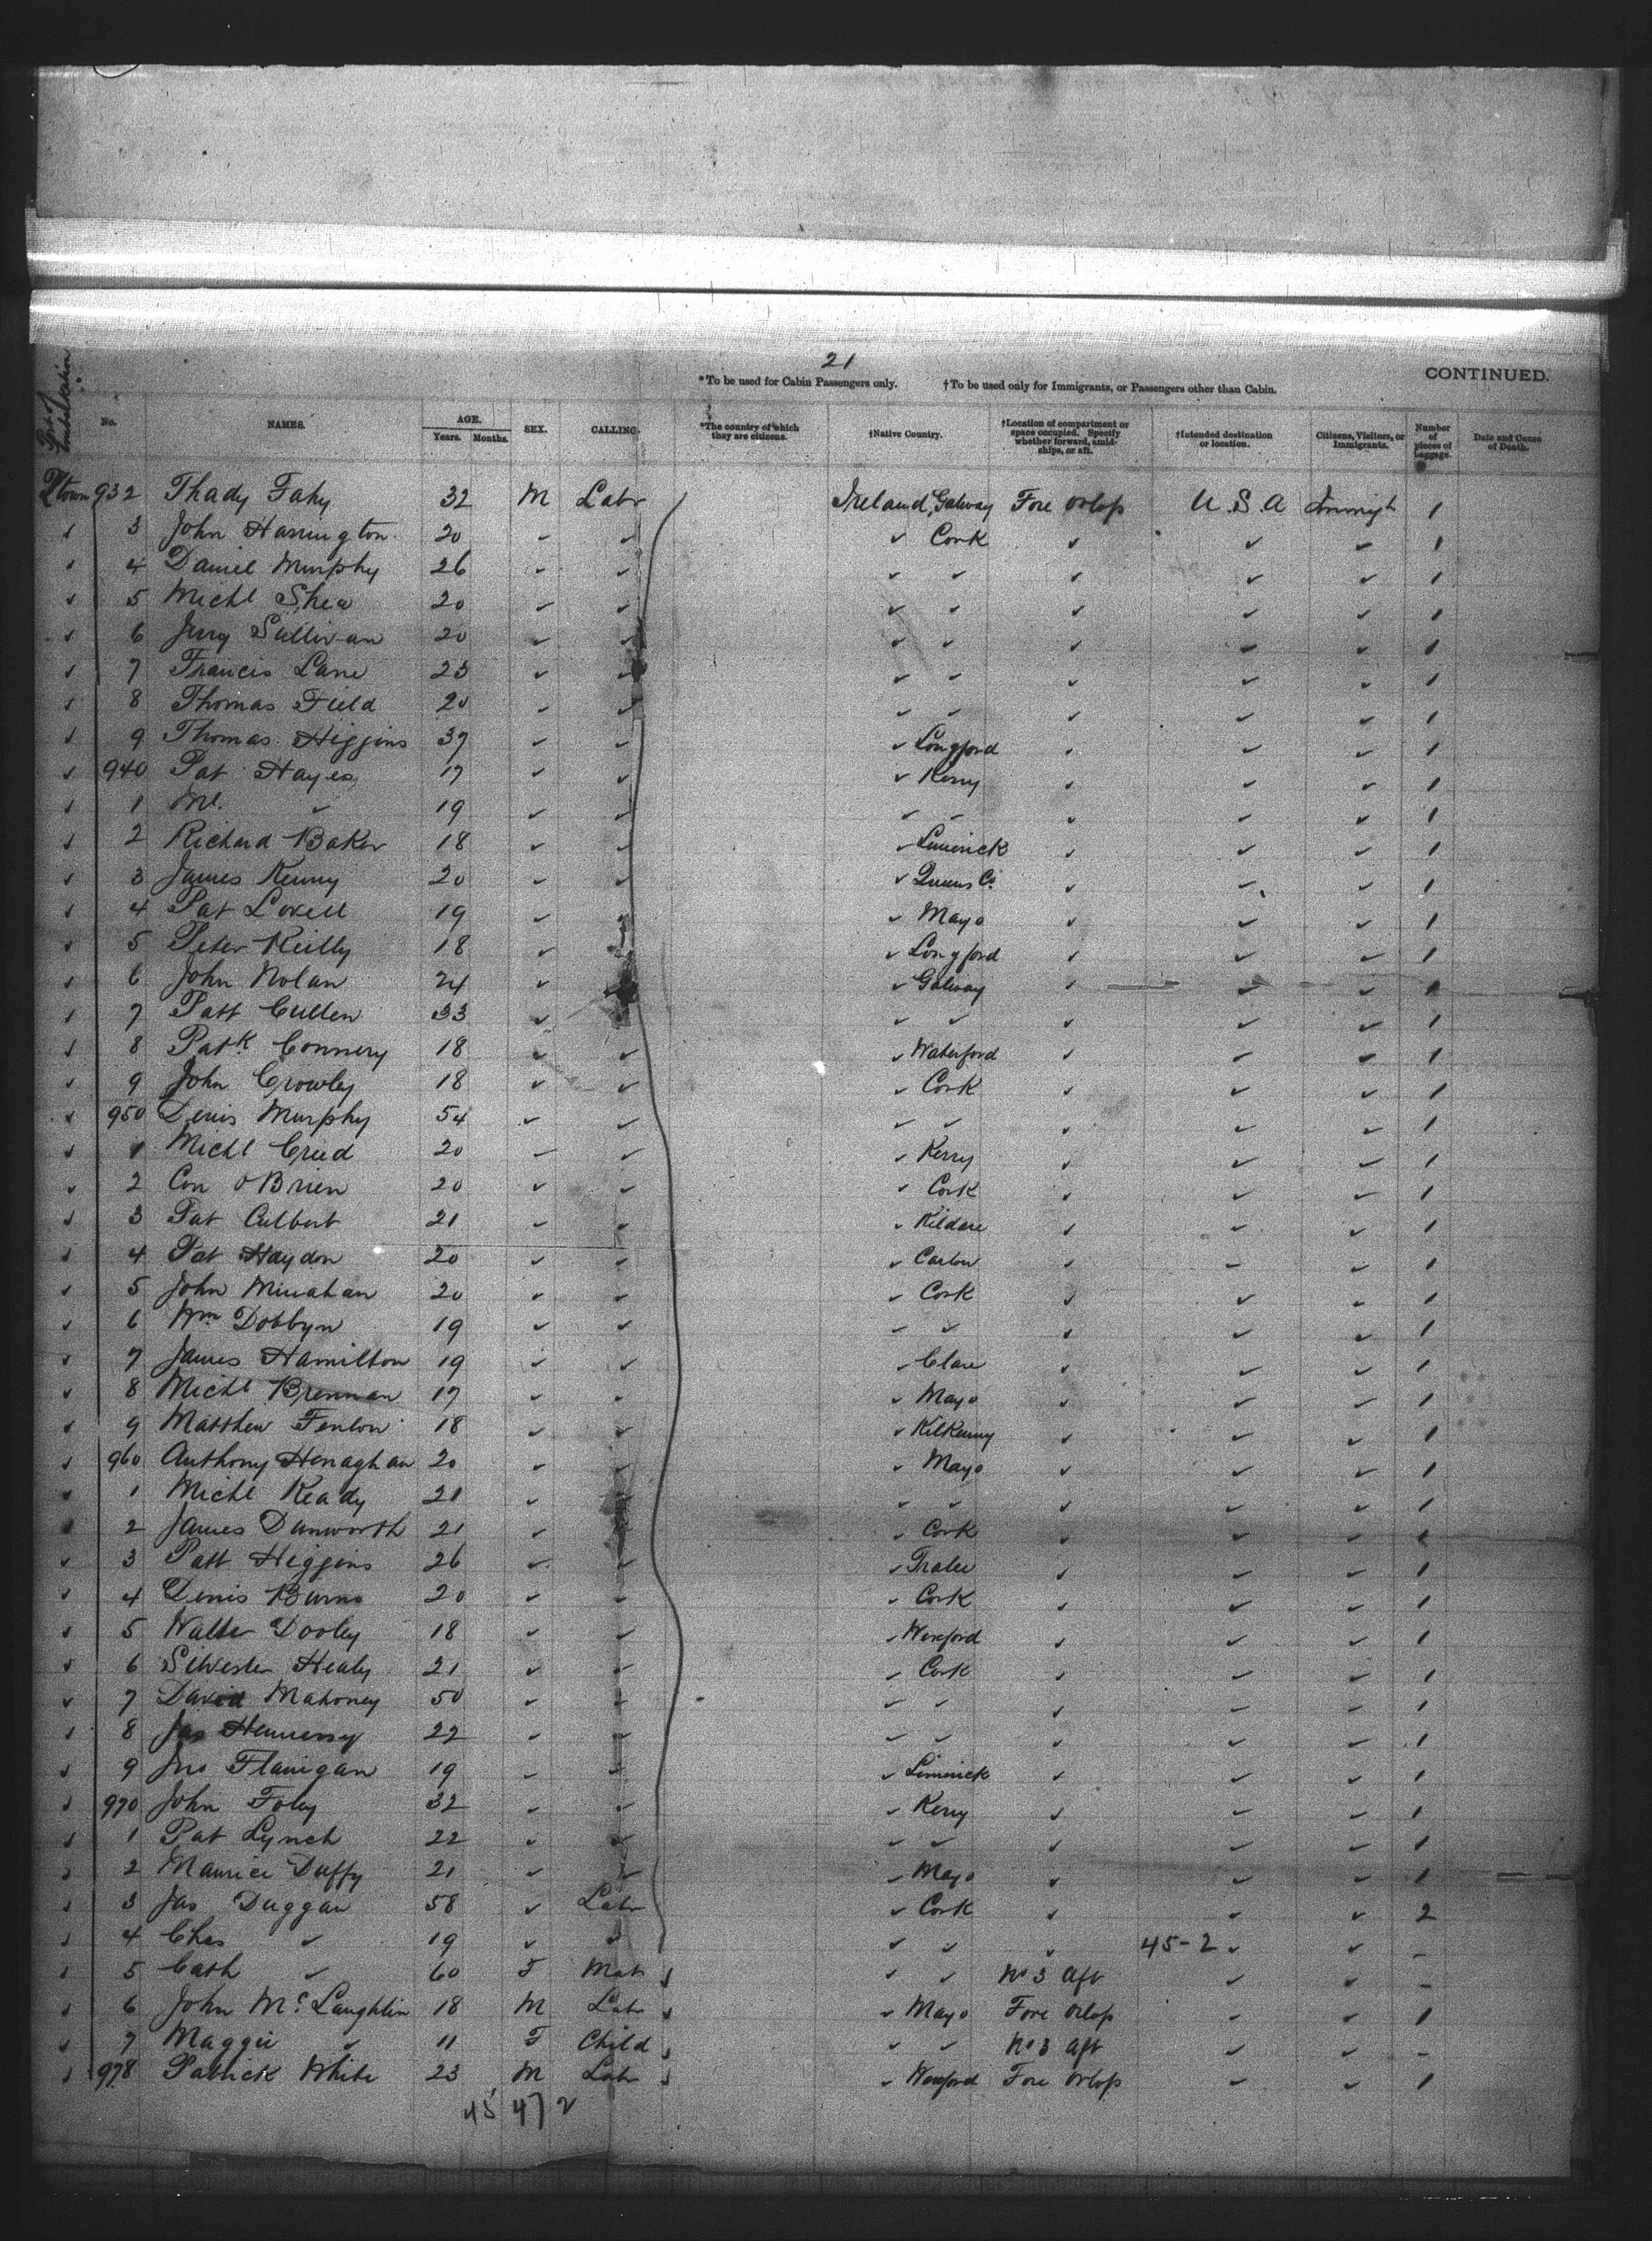 21
*To be used for Cabin Passengers only. †To be used only for Immigrants, or Passengers other than Cabin. CONTINUED.
Port of Embarkation No. NAMES. AGE. Years. Months. SEX. CALLING. *The country of which they are citizens. †Native Country. †Location of compartment or space occupied. Specify whether forward, amidships, or aft. †Intended destination or location. Citizens, Visitors, or Immigrants. Number of pieces of baggage. Date and Cause of Death.
Qtown 932 Thady Fahy 32 M Labr Ireland, Galway Fore Orlop U.S.A Immigt 1
✓ 3 John Harrington 20 ✓ ✓ ✓ Cork ✓ ✓ ✓ 1
✓ 4 Daniel Murphy 26 ✓ ✓ ✓ ✓ ✓ ✓ ✓ 1
✓ 5 Michl Shea 20 ✓ ✓ ✓ ✓ ✓ ✓ ✓ 1
✓ 6 Jerry Sullivan 20 ✓ ✓ ✓ ✓ ✓ ✓ ✓ 1
✓ 7 Francis Lane 23 ✓ ✓ ✓ ✓ ✓ ✓ ✓ 1
✓ 8 Thomas Field 20 ✓ ✓ ✓ ✓ ✓ ✓ ✓ 1
✓ 9 Thomas Higgins 37 ✓ ✓ ✓ Longford ✓ ✓ ✓ 1
✓ 940 Pat Hayes 17 ✓ ✓ ✓ Kerry ✓ ✓ ✓ 1
✓ 1 Ml. ✓ 19 ✓ ✓ ✓ ✓ ✓ ✓ ✓ 1
✓ 2 Richard Baker 18 ✓ ✓ ✓ Limerick ✓ ✓ ✓ 1
✓ 3 James Kenny 20 ✓ ✓ ✓ Queens Co. ✓ ✓ ✓ 1
✓ 4 Pat Lovell 19 ✓ ✓ ✓ Mayo ✓ ✓ ✓ 1
✓ 5 Peter Reilly 18 ✓ ✓ Longford ✓ ✓ ✓ 1
✓ 6 John Nolan 24 ✓ ✓ Galway ✓ ✓ ✓ 1
✓ 7 Patt Cullen 33 ✓ ✓ ✓ ✓ ✓ ✓ 1
✓ 8 Patk. Connery 18 ✓ ✓ ✓ Waterford ✓ ✓ ✓ 1
✓ 9 John Crowley 18 ✓ ✓ ✓ Cork ✓ ✓ ✓ 1
✓ 950 Denis Murphy 54 ✓ ✓ ✓ ✓ ✓ ✓ ✓ 1
✓ 1 Michl Creed 20 ✓ ✓ ✓ Kerry ✓ ✓ ✓ 1
✓ 2 Con O'Brien 20 ✓ ✓ ✓ Cork ✓ ✓ ✓ 1
✓ 3 Pat Culbert 21 ✓ ✓ ✓ Kildare ✓ ✓ ✓ 1
✓ 4 Pat Haydon 20 ✓ ✓ ✓ Carlow ✓ ✓ ✓ 1
✓ 5 John Minahan 20 ✓ ✓ ✓ Cork ✓ ✓ ✓ 1
✓ 6 Wm Dobbyn 19 ✓ ✓ ✓ ✓ ✓ ✓ ✓ 1
✓ 7 James Hamilton 19 ✓ ✓ ✓ Clare ✓ ✓ ✓ 1
✓ 8 Michl Brennan 17 ✓ ✓ ✓ Mayo ✓ ✓ ✓ 1
✓ 9 Matthew Fenlon 18 ✓ ✓ ✓ Kilkenny ✓ ✓ ✓ 1
✓ 960 Anthony Henaghan 20 ✓ ✓ ✓ Mayo ✓ ✓ ✓ 1
✓ 1 Michl Ready 21 ✓ ✓ ✓ ✓ ✓ ✓ 1
✓ 2 James Dunworth 21 ✓ ✓ Cork ✓ ✓ ✓ 1
✓ 3 Patt Higgins 26 ✓ ✓ ✓ Tralee ✓ ✓ ✓ 1
✓ 4 Denis Burns 20 ✓ ✓ ✓ Cork ✓ ✓ ✓ 1
✓ 5 Walter Dooley 18 ✓ ✓ ✓ Wexford ✓ ✓ ✓ 1
✓ 6 Silvester Healy 21 ✓ ✓ ✓ Cork ✓ ✓ ✓ 1
✓ 7 David Mahoney 50 ✓ ✓ ✓ ✓ ✓ ✓ ✓ 1
✓ 8 Jas Hennessy 22 ✓ ✓ ✓ ✓ ✓ ✓ ✓ 1
✓ 9 Jno Flanigan 19 ✓ ✓ ✓ Limerick ✓ ✓ ✓ 1
✓ 970 John Foley 32 ✓ ✓ ✓ Kerry ✓ ✓ ✓ 1
✓ 1 Pat Lynch 22 ✓ ✓ ✓ ✓ ✓ ✓ ✓ 1
✓ 2 Maurice Duffy 21 ✓ ✓ ✓ Mayo ✓ ✓ ✓ 1
✓ 3 Jas Duggan 58 ✓ Labr ✓ Cork ✓ ✓ ✓ 2
✓ 4 Chas ✓ 19 ✓ ✓ ✓ ✓ ✓ 45-2 ✓ ✓ –
✓ 5 Cath ✓ 60 F Mat ✓ ✓ No 3 Aft ✓ ✓ –
✓ 6 John McLaughlin 18 M Labr ✓ Mayo Fore Orlop ✓ ✓ 1
✓ 7 Maggie ✓ 11 F Child ✓ ✓ No 3 Aft ✓ ✓ –
✓ 978 Patrick White 23 M Labr ✓ Wexford Fore Orlop ✓ ✓ 1
45 47 2